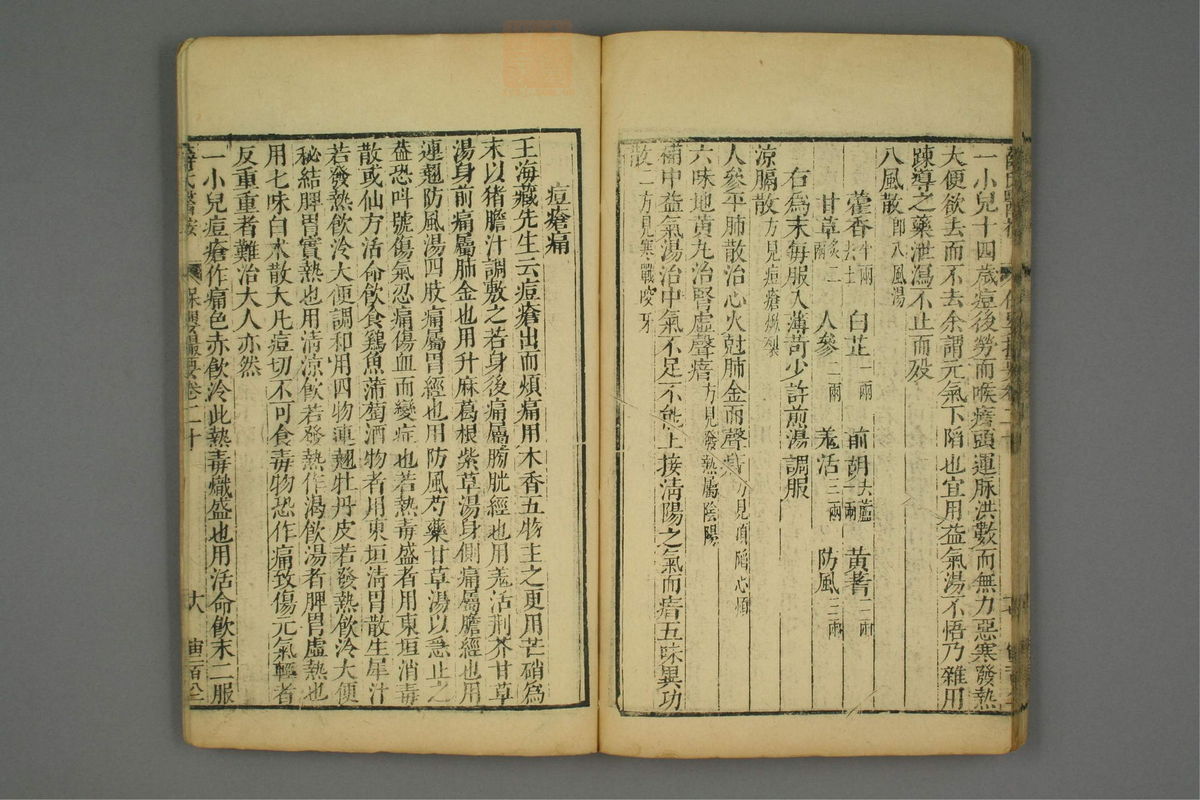 一小兒十四歲痘後勞而喉瘖頭運脉洪數而無力惡寒發熱
大便欲去而不去余謂元氣下陷也宜用益氣湯不悟乃雜用
踈導之藥泄瀉不止而歿
八風散 即八風湯
藿香 半兩去土 白芷 一兩 前胡 去蘆一兩 黃耆 二兩
甘草 炙二兩 人參 二兩 羗活 三兩 防風 三兩
右爲末每服入薄苛少許煎湯調服
涼膈散 方見痘瘡
人參平肺散治心火尅肺金而聲 方見頂陷心煩
六味地黃丸治腎虛聲瘖 方見發熱屬陰陽
補中益氣湯治中氣不足不能上接清陽之氣而瘖五味異功
散二方見寒戰咬牙
痘瘡痛
王海藏先生云痘瘡出而煩痛用木香五物主之更用芒硝爲
末以猪膽汁調敷之若身後痛屬膀胱經也用羗活荆芥甘草
湯身前痛屬肺金也用升麻葛根紫草湯身側痛屬膽經也用
連翹防風湯四肢痛屬胃經也用防風芍藥甘草湯以急止之
葢恐呌號傷氣忍痛傷血而變症也若熱毒盛者用東垣消毒
散或仙方活命飲食鷄魚蒲萄酒物者用東垣清胃散生犀汁
若發熱飲冷大便調和用四物連翹牡丹皮若發熱飲冷大便
秘結脾胃實熱也用清凉飲若發熱作渴飲湯者脾胃虛熱也
用七味白朮散大凡痘切不可食毒物恐作痛致傷元氣輕者
反重重者難治大人亦然
一小兒痘瘡作痛色赤飲冷此熱毒熾盛也用活命飲末二服
保嬰撮要卷二十